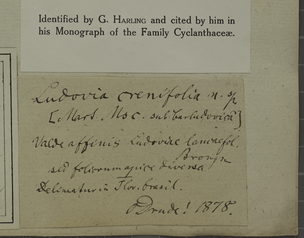 Identified by G. HARLING and cited by him in
his Monograph of the Family Cyclanthaceæ.
Ludovia crenifolia n. sp.
[Mart. Msc. sub Carludovica]
Valde affinis Ludoviae lancaefol.
Brongn
sed foliorum apice diversa
Delineatur in Flor. brasil.
Drude! 1878.